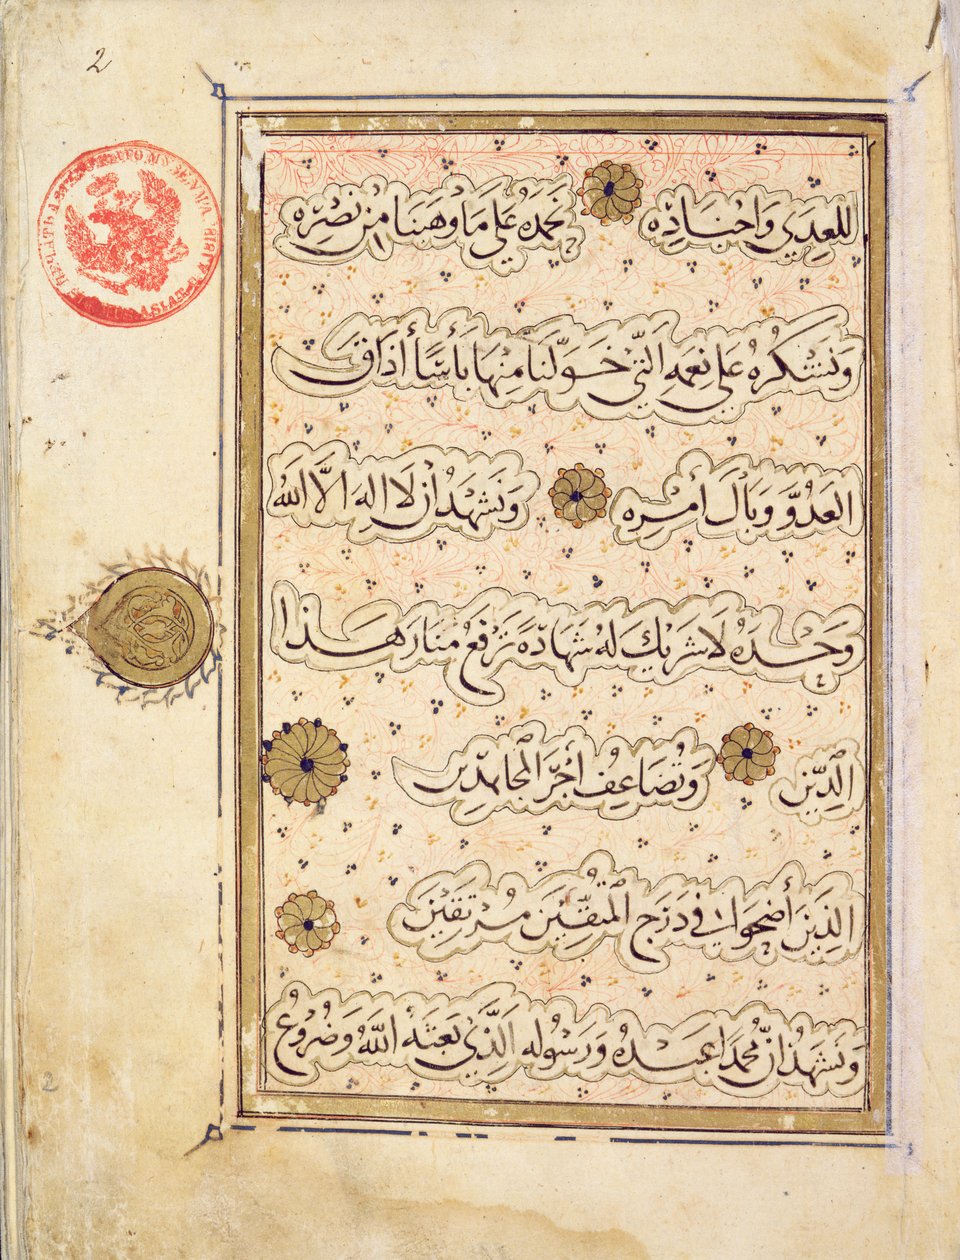 2
للعدى واجناده نحمده على ما وهبنا من نصره
ونشكره على نعمه التي خولنا منها بأسًا أذاق
العدوّ وبال أمره ونشهد أن لا اله الّا الله
وحده لا شريك له شهادةً ترفع منار هذا
الدين وتضاعف أجر المجاهدين
الذين أضحوا في درج المتقين مرتقين
ونشهد انّ محمدا عبده ورسوله الذي بعثه الله وضروع
2